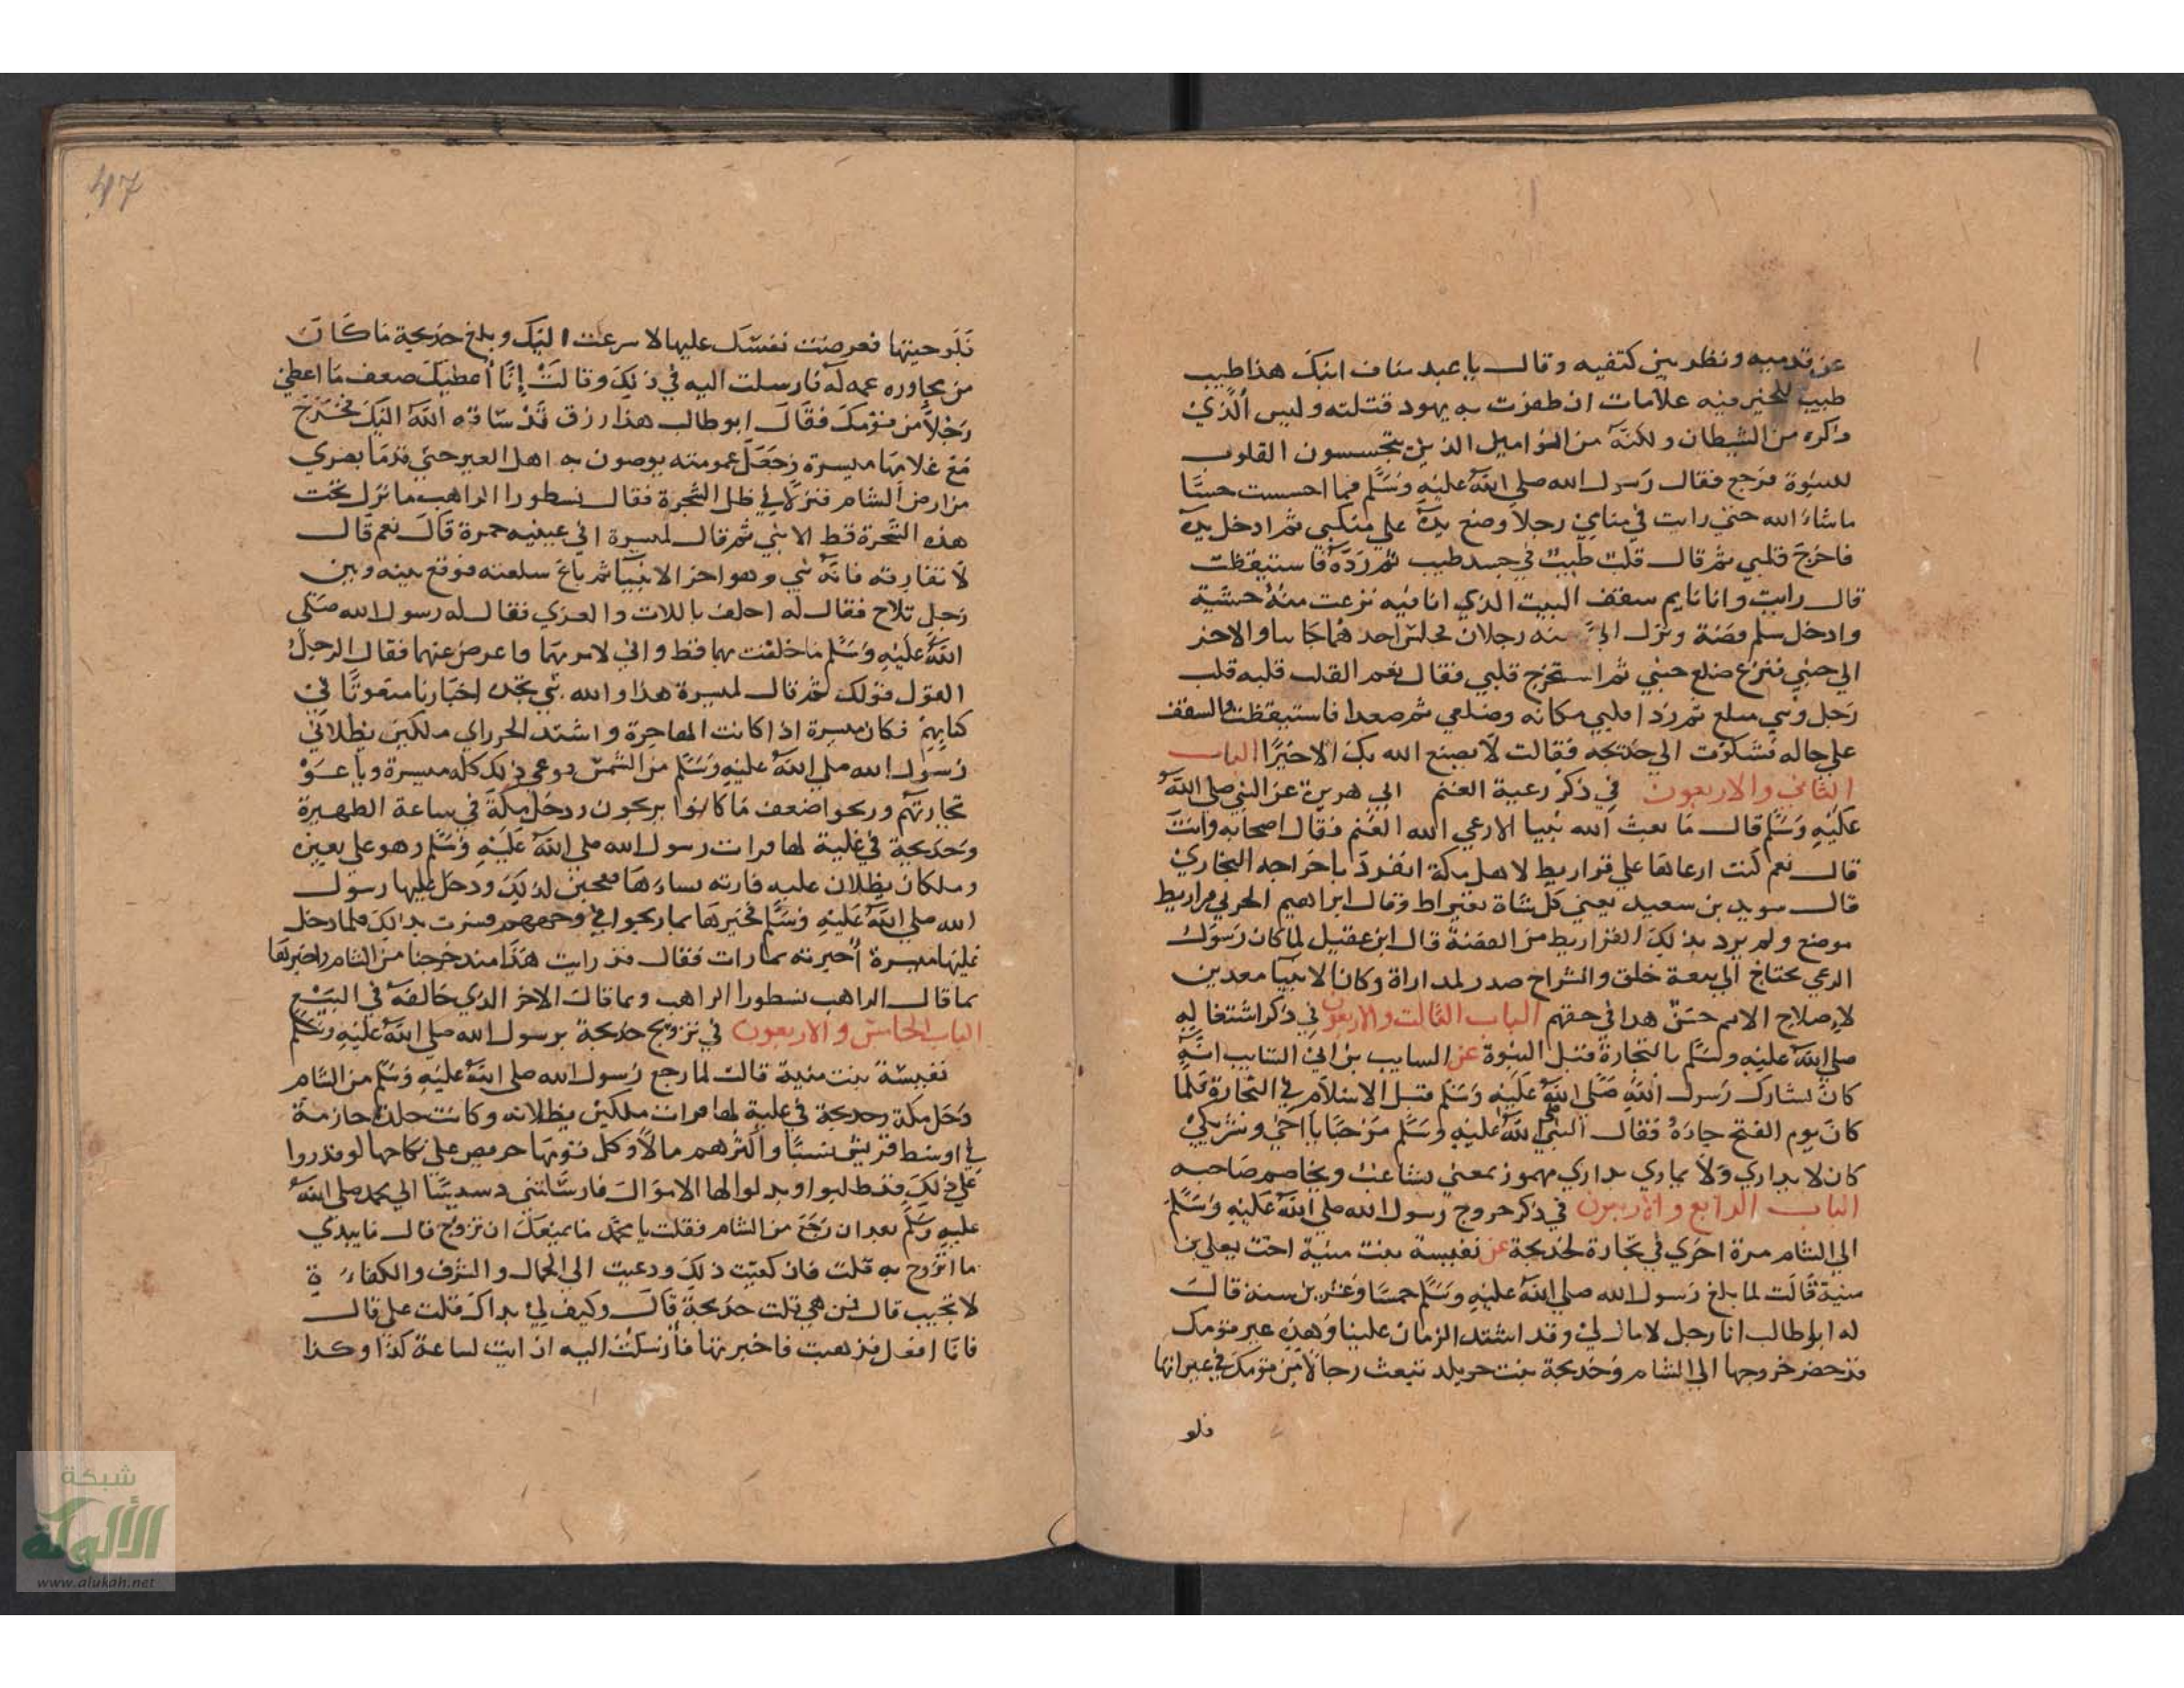 عن قدميه ونظر بين كتفيه وقال يا عبد مناف ابنك هذا طيب
طبيب للخير فيه علامات ان ظفرت به يهود قتلته وليس الذي
ذاكره من الشيطان ولكنه من النواميل الذين يتجسسون القلوب
للنبوة فرجع فقال رسول الله صلى الله عليه وسلم فما احسست حسًا
ما شاء الله حتى رايت في منامي رجلا وضع يده على منكبي ثم ادخل يده
فاخرج قلبي ثم قال قلب طيب في جسد طيب ثم رده فاستيقظت
قال رايت وانا نايم سقف البيت الذي انا فيه نزعت منه خشبة
وادخل سلم فضة ونزل الي منه رجلان فجلس احدهما جانبا والاخر
الي جنبي فنزع ضلع جنبي ثم استخرج قلبي فقال نعم القلب قلبه قلب
رجل ونبي مبلغ ثم ردا قلبي مكانه وضلعي ثم صعدا فاستيقظت والسقف
علي حاله فشكوت الي خديجه فقالت لا يصنع الله بك الا خيرًا الباب
الثاني والاربعون في ذكر رعية الغنم ابي هريرة عن النبي صلى الله
عليه وسلم قال ما بعث الله نبيا الا رعي الله الغنم فقال اصحابه وانت
قال نعم كنت ارعاها علي قراريط لاهل مكة انفرد باخراجه البخاري
قال سويد بن سعيد يعني كل شاة بقيراط وقال ابراهيم الحربي قراريط
موضع ولم يرد بذلك القراريط من الفضة قال ابن عقيل لما كان رسول
الرعي يحتاج الي سعة خلق وانشراح صدر لمداراة وكان الانبيا معدين
لاصلاح الامم حسن هدا في حقهم الباب الثالث والاربعون في ذكر اشتغاله
صلى الله عليه وسلم بالتجارة قبل النبوة عن السايب بن ابي السايب انه
كان يشارك رسول الله صلى الله عليه وسلم قبل الاسلام في التجارة فلما
كان يوم الفتح جاءه فقال النبي صلى الله عليه وسلم مرحبا باخي وشريكي
كان لا يداري ولا يماري يداري مهموز بمعني يشاغب ويخاصم صاحبه
الباب الرابع والاربعون في ذكر خروج رسول الله صلى الله عليه وسلم
الي الشام مرة اخري في تجارة لخديجة عن نفيسة بنت منية اخت يعلي بن
منية قالت لما بلغ رسول الله صلى الله عليه وسلم خمسا وعشرين سنة قال
له ابو طالب انا رجل لا مال لي وقد اشتد الزمان علينا وهذه عير قومك
قد حضر خروجها الي الشام وخديجة بنت خويلد تبعث رجالا من قومك في عيراتها
فلو
47
فلو جيتها فعرضت نفسك عليها لاسرعت اليك وبلغ خديجة ما كان
من محاوره عمه له فارسلت اليه في ذلك وقالت إنا أعطيك ضعف ما اعطي
رجلا من قومك فقال ابو طالب هذا رزق قد ساقه الله اليك فخرج
مع غلامها ميسرة وجعل عمومته يوصون به اهل العير حتي قدما بصري
من ارض الشام فنزلا في ظل الشجرة فقال نسطورا الراهب ما نزل تحت
هذه الشجرة قط الا نبي ثم قال لميسرة افي عينيه حمرة قال نعم قال
لا تفارقه فانه نبي وهو اخر الانبيا ثم باع سلعته فوقع بينه وبين
رجل تلاح فقال له احلف باللات والعزي فقال له رسول الله صلى
الله عليه وسلم ما حلفت بهما قط واني لامر بهما فاعرض عنهما فقال الرجل
القول قولك ثم قال لميسرة هذا والله نبي تجده احبارنا منعوتًا في
كتابهم فكان ميسرة اذا كانت الهاجرة واشتد الحر راي ملكين يظلاني
رسول الله صلى الله عليه وسلم من الشمس فوعي ذلك كله ميسرة وباعو
تجارتهم وربحوا ضعف ما كانوا يربحون ودخل مكة في ساعة الظهيرة
وخديجة في علية لها فرات رسول الله صلى الله عليه وسلم وهو علي بعيره
وملكان يظلان عليه فارته نساءها فعجبن لذلك ودخل عليها رسول
الله صلى الله عليه وسلم فخبرها بما ربحوا في وجههم فسرت بذلك فلما دخل
عليها ميسرة أخبرته بما رات فقال قد رايت هذا منذ خرجنا من الشام واخبرها
بما قال الراهب نسطورا الراهب وبما قال الاخر الذي خالفه في البيع
الباب الخامس والاربعون في تزويج خديجة برسول الله صلى الله عليه وسلم
نفيسة بنت منية قالت لما رجع رسول الله صلى الله عليه وسلم من الشام
دخل مكة وخديجة في علية لها فرات ملكين يظلانه وكانت جلدة حازمة
في اوسط قريش نسبًا وأكثرهم مالا وكل قومها حريص علي نكاحها لو قدروا
علي ذلك قد طلبوا وبذلوا لها الاموال فارسلتني دسيسًا الي محمد صلى الله
عليه وسلم بعد ان رجع من الشام فقلت يا محمد ما يمنعك ان تزوج قال ما بيدي
ما اتزوج به قلت فان كفيت ذلك ودعيت الي الجمال والشرف والكفاءة
لا تجيب قال فمن هي قلت خديجة قال وكيف لي بذاك قلت علي قال
فانا افعل فذهبت فاخبرتها فأرسلت اليه ان ايت لساعة كذا وكذا
شبكة
الألوكة
www.alukah.net